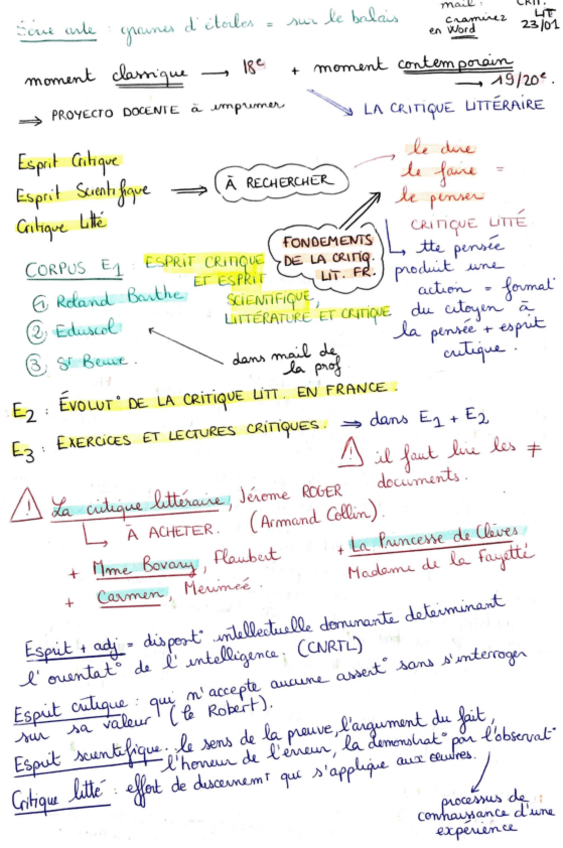 Série arte : graines d'étoiles = sur le balais
mail :
examinez
en Word
CRIT.
LIT
23/01
moment classique → 18e + moment contemporain
→ 19/20e.
⇒ PROYECTO DOCENTE à imprimer
LA CRITIQUE LITTÉRAIRE
Esprit Critique
Esprit Scientifique
Critique Litté
⇒ À RECHERCHER
le dire
le faire =
le penser
FONDEMENTS
DE LA CRITIQ.
LIT. FR.
CRITIQUE LITTÉ
tte pensée
produit une
action = format°
du citoyen à
la pensée + esprit
critique.
CORPUS E1 : ESPRIT CRITIQUE
ET ESPRIT
SCIENTIFIQUE,
LITTÉRATURE ET CRITIQUE
① Roland Barthe
② Eduscol
③ St Beuve.
dans mail de
la prof
E2 : ÉVOLUT° DE LA CRITIQUE LITT. EN FRANCE.
E3 : EXERCICES ET LECTURES CRITIQUES. ⇒ dans E1 + E2
⚠ il faut lire les ≠
documents.
⚠ La critique littéraire, Jérome ROGER
À ACHETER. (Armand Collin).
+ Mme Bovary, Flaubert
+ Carmen, Merimeé.
+ La Princesse de Clèves
Madame de la Fayette
Esprit + adj = disposit° intellectuelle dominante determinant
l'orientat° de l'intelligence. (CNRTL)
Esprit critique : qui n'accepte aucune assert° sans s'interroger
sur sa valeur (le Robert).
Esprit scientifique. le sens de la preuve, l'argument du fait,
l'horreur de l'erreur, la demonstrat° par l'observat°
Critique litté : effort de discernemt qui s'applique aux œuvres.
processus de
connaissance d'une
expérience